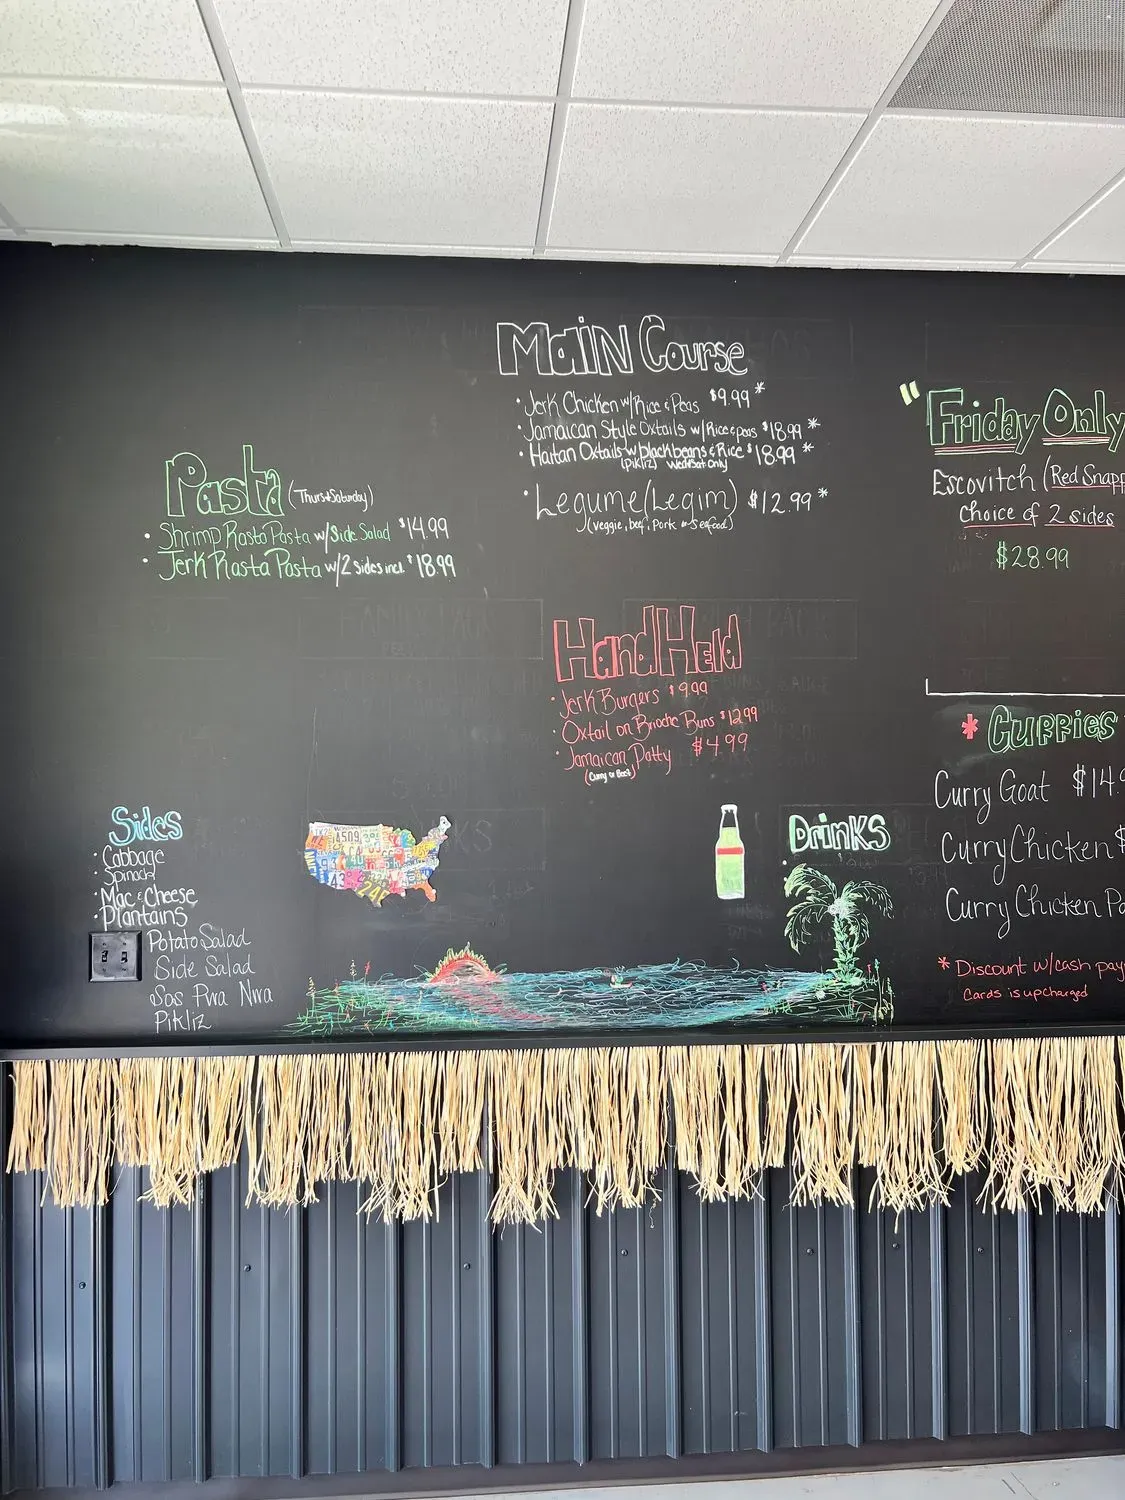 Main Course
• Jerk Chicken w/Rice & Peas $9.99 *
• Jamaican Style Oxtails w/Rice & peas $18.99 *
• Haitan Oxtails w/ black beans & Rice $18.99 *
(Pikliz) Wed&Sat Only
• Legume (Legim) $12.99 *
(veggie, beef, Pork or Seafood)
Pasta (Thurs & Saturday)
• Shrimp Rasta Pasta w/Side Salad $14.99
• Jerk Rasta Pasta w/2 sides incl. $18.99
HandHeld
• Jerk Burgers $9.99
• Oxtail on Brioche Buns $12.99
• Jamaican Patty $4.99
(Curry or Beef)
Sides
• Cabbage
• Spinach
• Mac & Cheese
• Plantains
Potato Salad
Side Salad
Sos Pwa Nwa
Pikliz
Drinks
"Friday Only
Escovitch (Red Snapp
Choice of 2 sides
$28.99
* Curries
Curry Goat $14.9
Curry Chicken $
Curry Chicken Pa
* Discount w/cash pay
Cards is upcharged